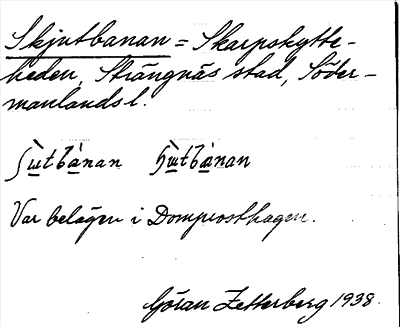 Skjutbanan = Skarpskytte-
heden, Strängnäs stad, Söder-
manlands l.
ʃùtbánan ɧùtbánan
Var belägen i Domprosthagen.
Götan Zetterberg 1938.